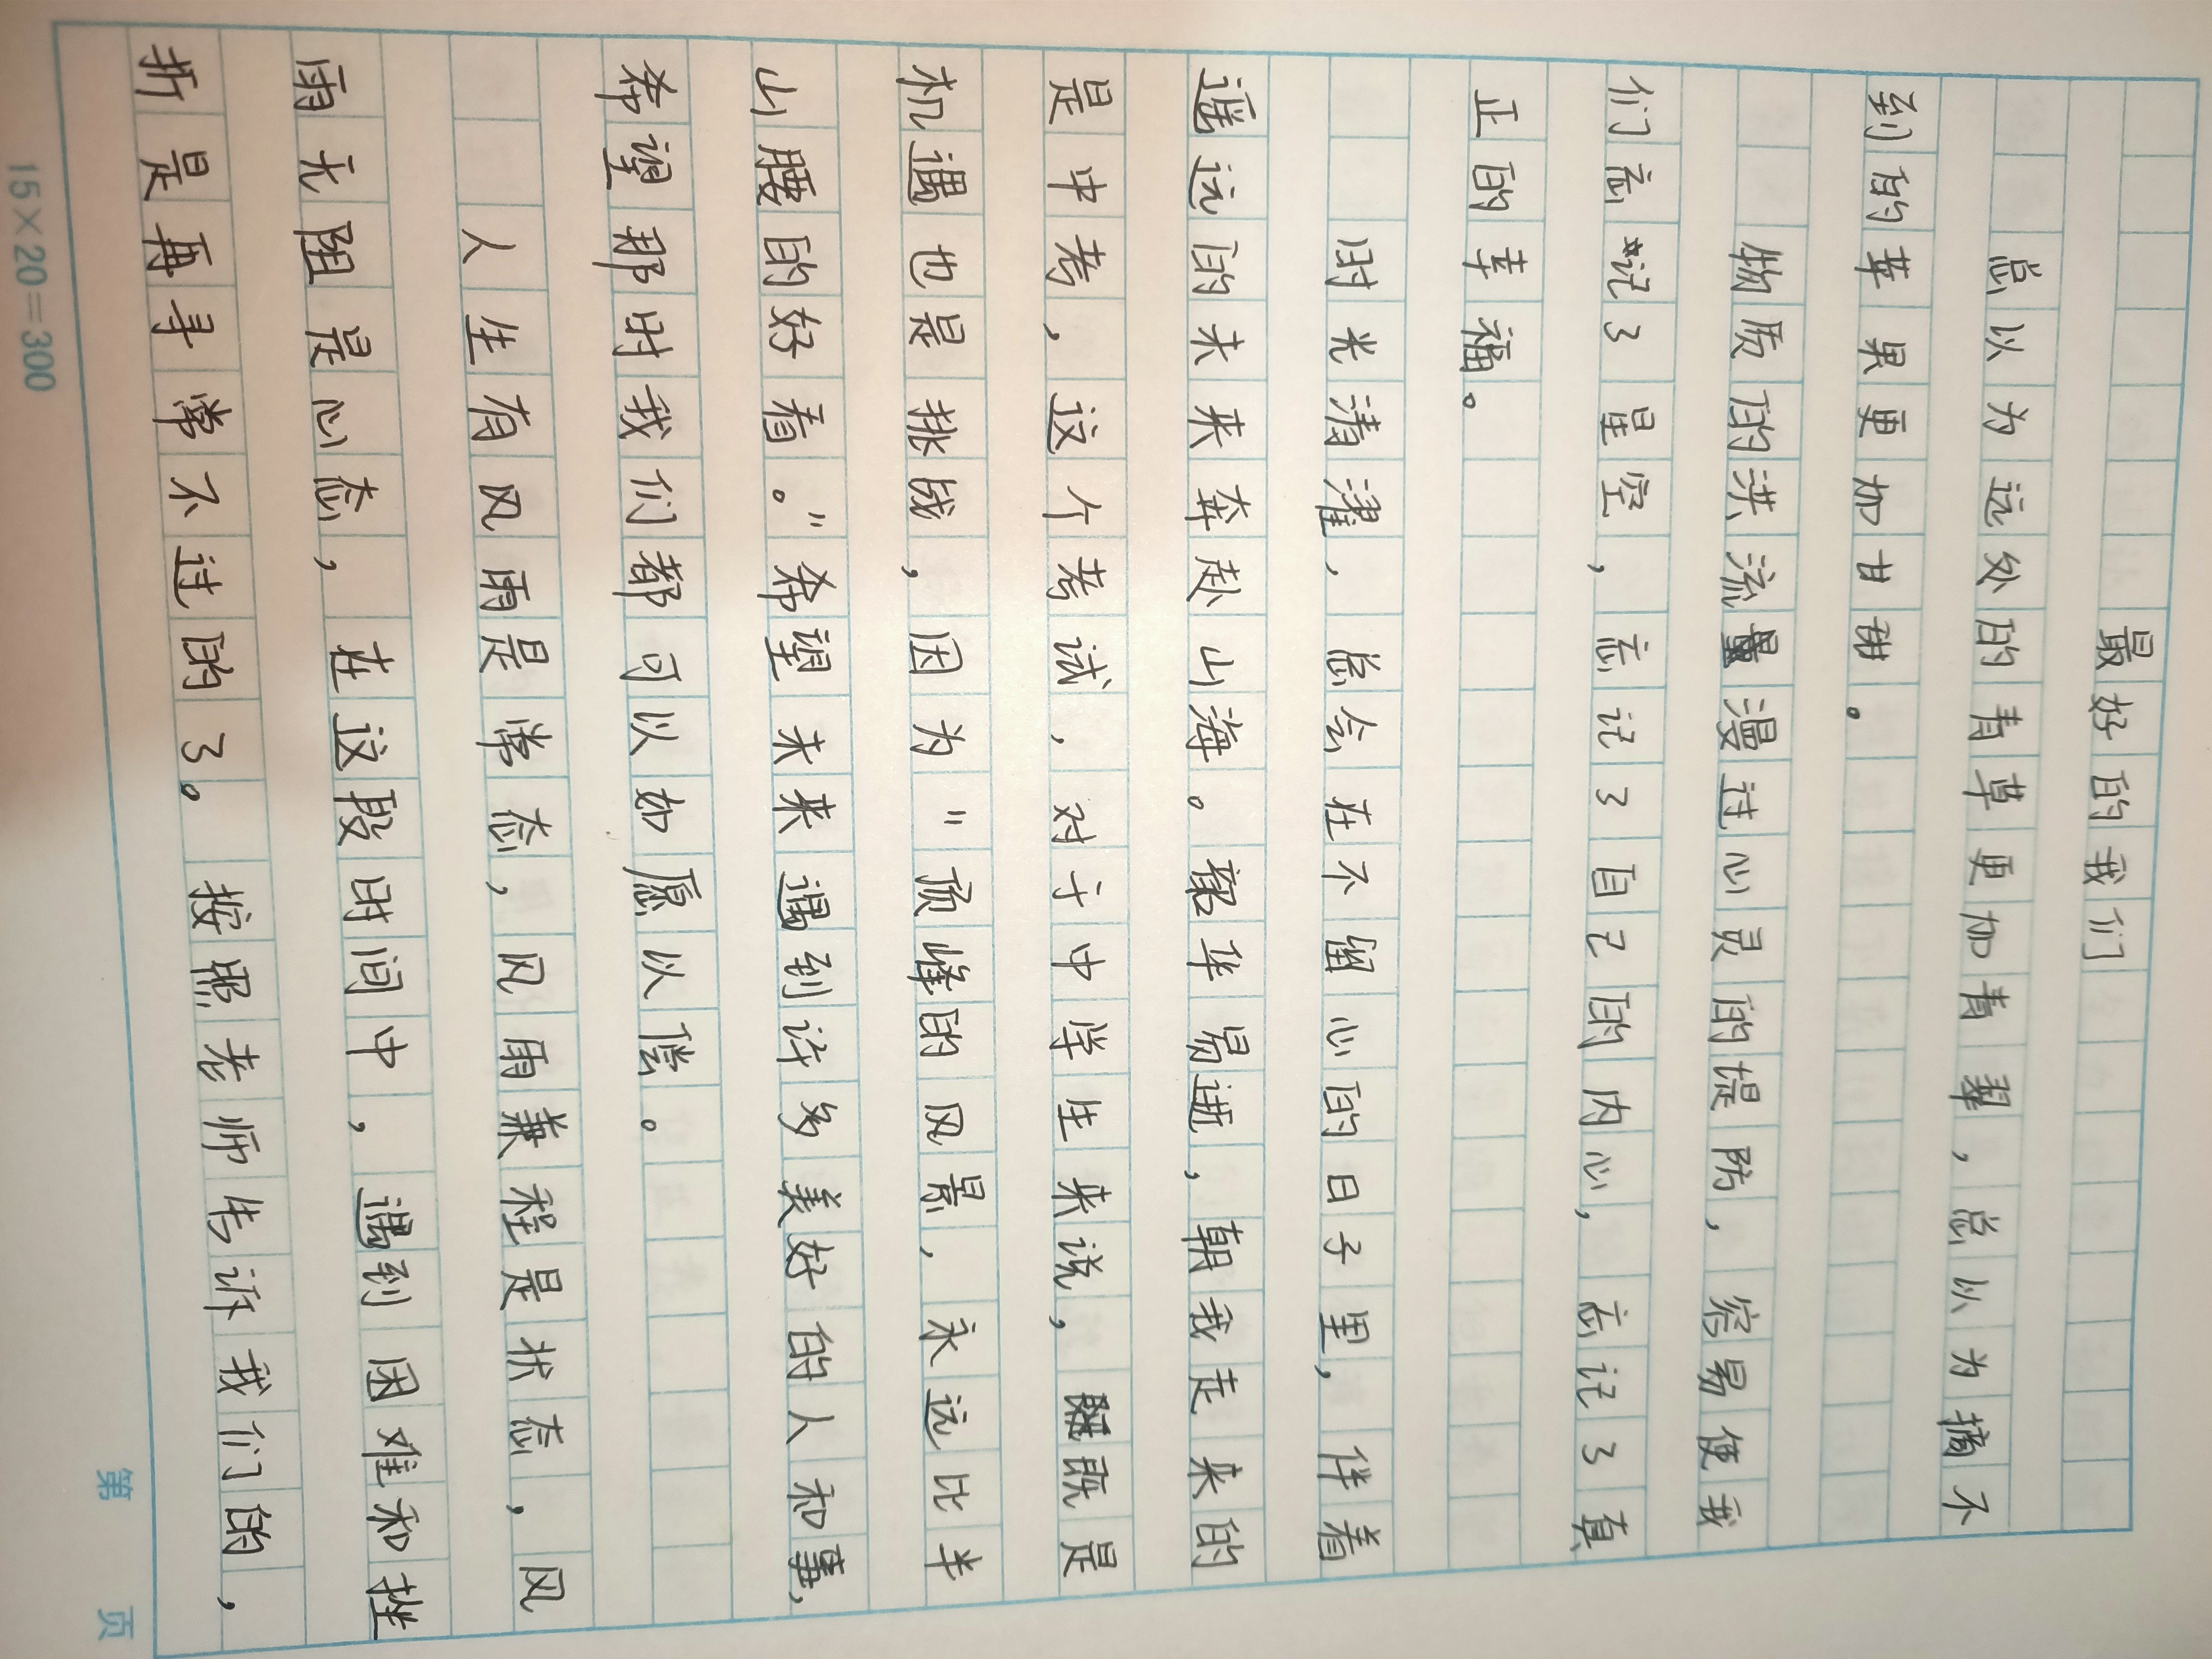 最好的我们
总以为远处的青草更加青翠，总以为摘不
到的苹果更加甘甜。
物质的洪流漫过心灵的堤防，容易使我
们忘记了星空，忘记了自己的内心，忘记了真
正的幸福。
时光清濯，总会在不留心的日子里，伴着
遥远的未来奔赴山海。韶华易逝，朝我走来的
是中考，这个考试，对于中学生来说，既是
机遇也是挑战，因为"顶峰的风景，永远比半
山腰的好看。"希望未来遇到许多美好的人和事，
希望那时我们都可以如愿以偿。
人生有风雨是常态，风雨兼程是状态，风
雨无阻是心态，在这段时间中，遇到困难和挫
折是再寻常不过的了。按照老师告诉我们的，
15×20=300
第 页